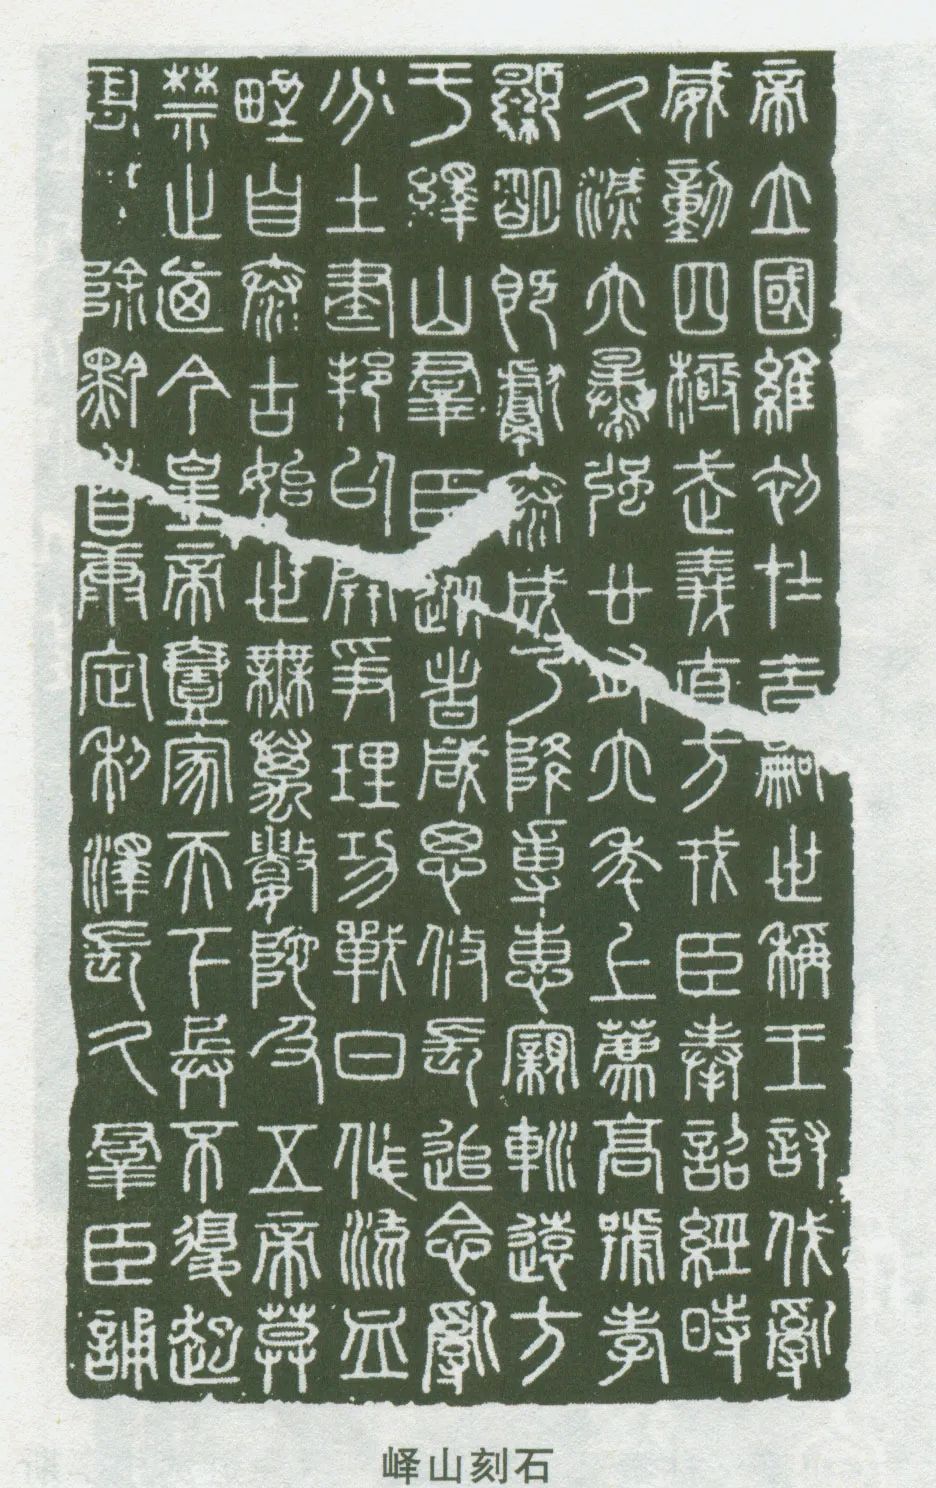 帝立國維初在昔嗣世稱王討伐亂
威動四極武義直方戎臣奉詔經時
久滅六暴強廿有六年上薦高號孝
顯明既獻泰成乃降專惠寴巡遠方
于繹山群臣從者咸思攸長追念亂
分土建邦以開爭理功戰日作流血
野自泰古始世無萬數陀及五帝莫
禁止廼今皇帝壹家天下兵不復起
害除黔首康定利澤長久群臣誦
峄山刻石